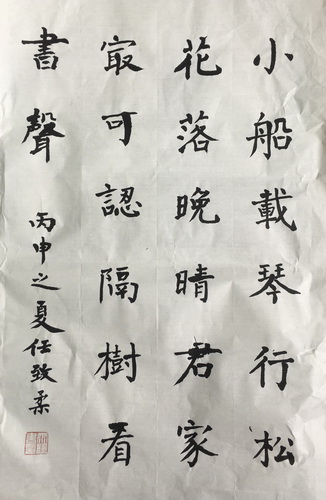 小船載琴行松
花落晚晴君家
冣可認隔樹看
書聲
丙申之夏任致柔